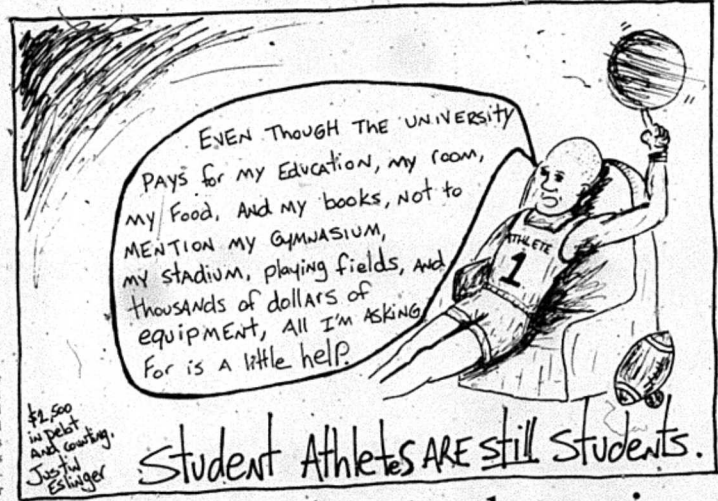 EVEN THOUGH THE UNIVERSITY
PAYS for my Education, my room,
my Food, And my books, not to
MENTION my GYMNASIUM,
my stadium, playing fields, and
thousands of dollars of
equipment, All I'm Asking
For is a little help.
ATHLETE
1
$2,500
in Debt
And counting.
Justin
Eslinger
Student Athletes ARE still Students.